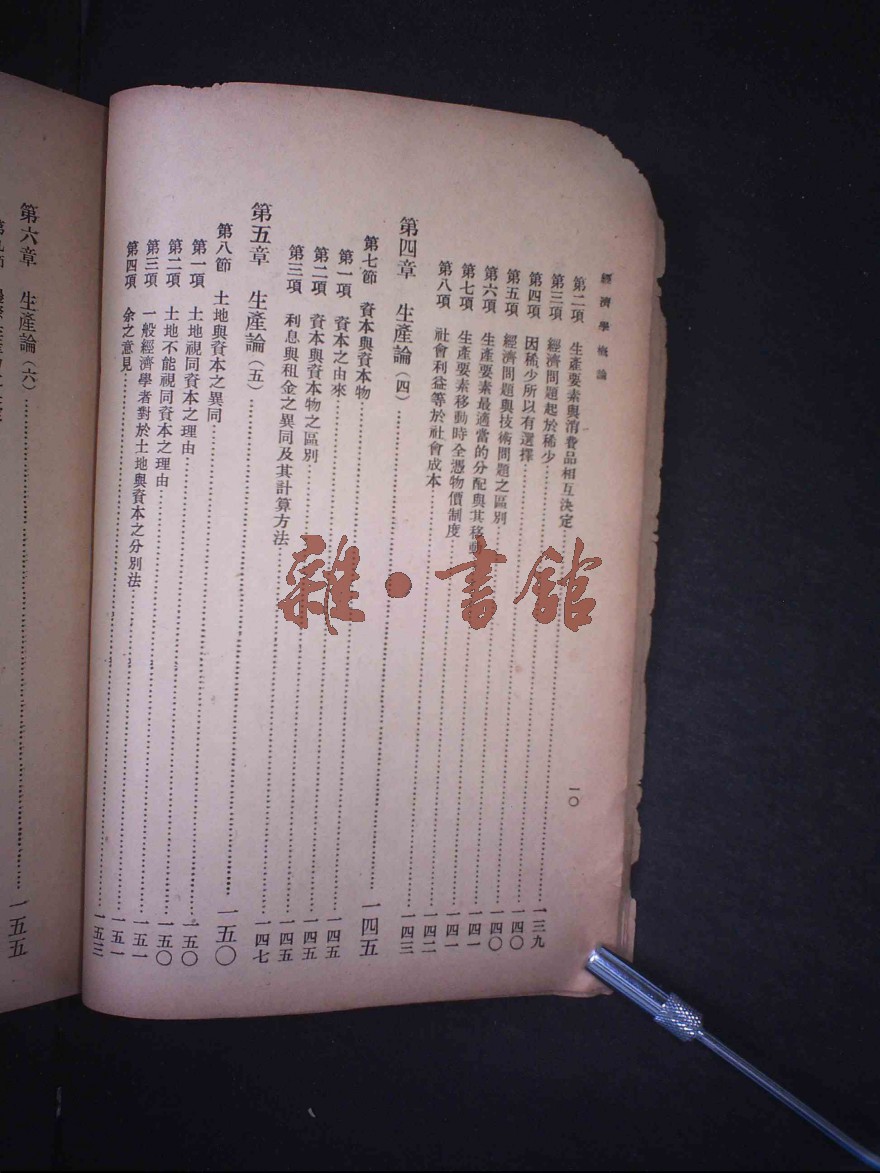 經濟學概論
一〇
第二項 生產要素與消費品相互決定……一三九
第三項 經濟問題起於稀少……一四〇
第四項 因稀少所以有選擇……一四〇
第五項 經濟問題與技術問題之區別……一四一
第六項 生產要素最適當的分配與其移動……一四一
第七項 生產要素移動時全憑物價制度……一四二
第八項 社會利益等於社會成本……一四三
第四章 生產論（四）……一四五
第七節 資本與資本物……一四五
第一項 資本之由來……一四五
第二項 資本與資本物之區別……一四五
第三項 利息與租金之異同及其計算方法……一四七
第五章 生產論（五）……一五〇
第八節 土地與資本之異同……一五〇
第一項 土地視同資本之理由……一五〇
第二項 土地不能視同資本之理由……一五一
第三項 一般經濟學者對於土地與資本之分別法……一五一
第四項 余之意見……一五三
第六章 生產論（六）……一五五
雜·書館